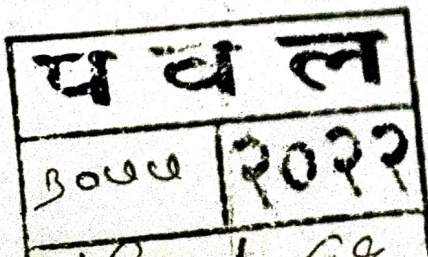 प व ल
३०५५ २०२२